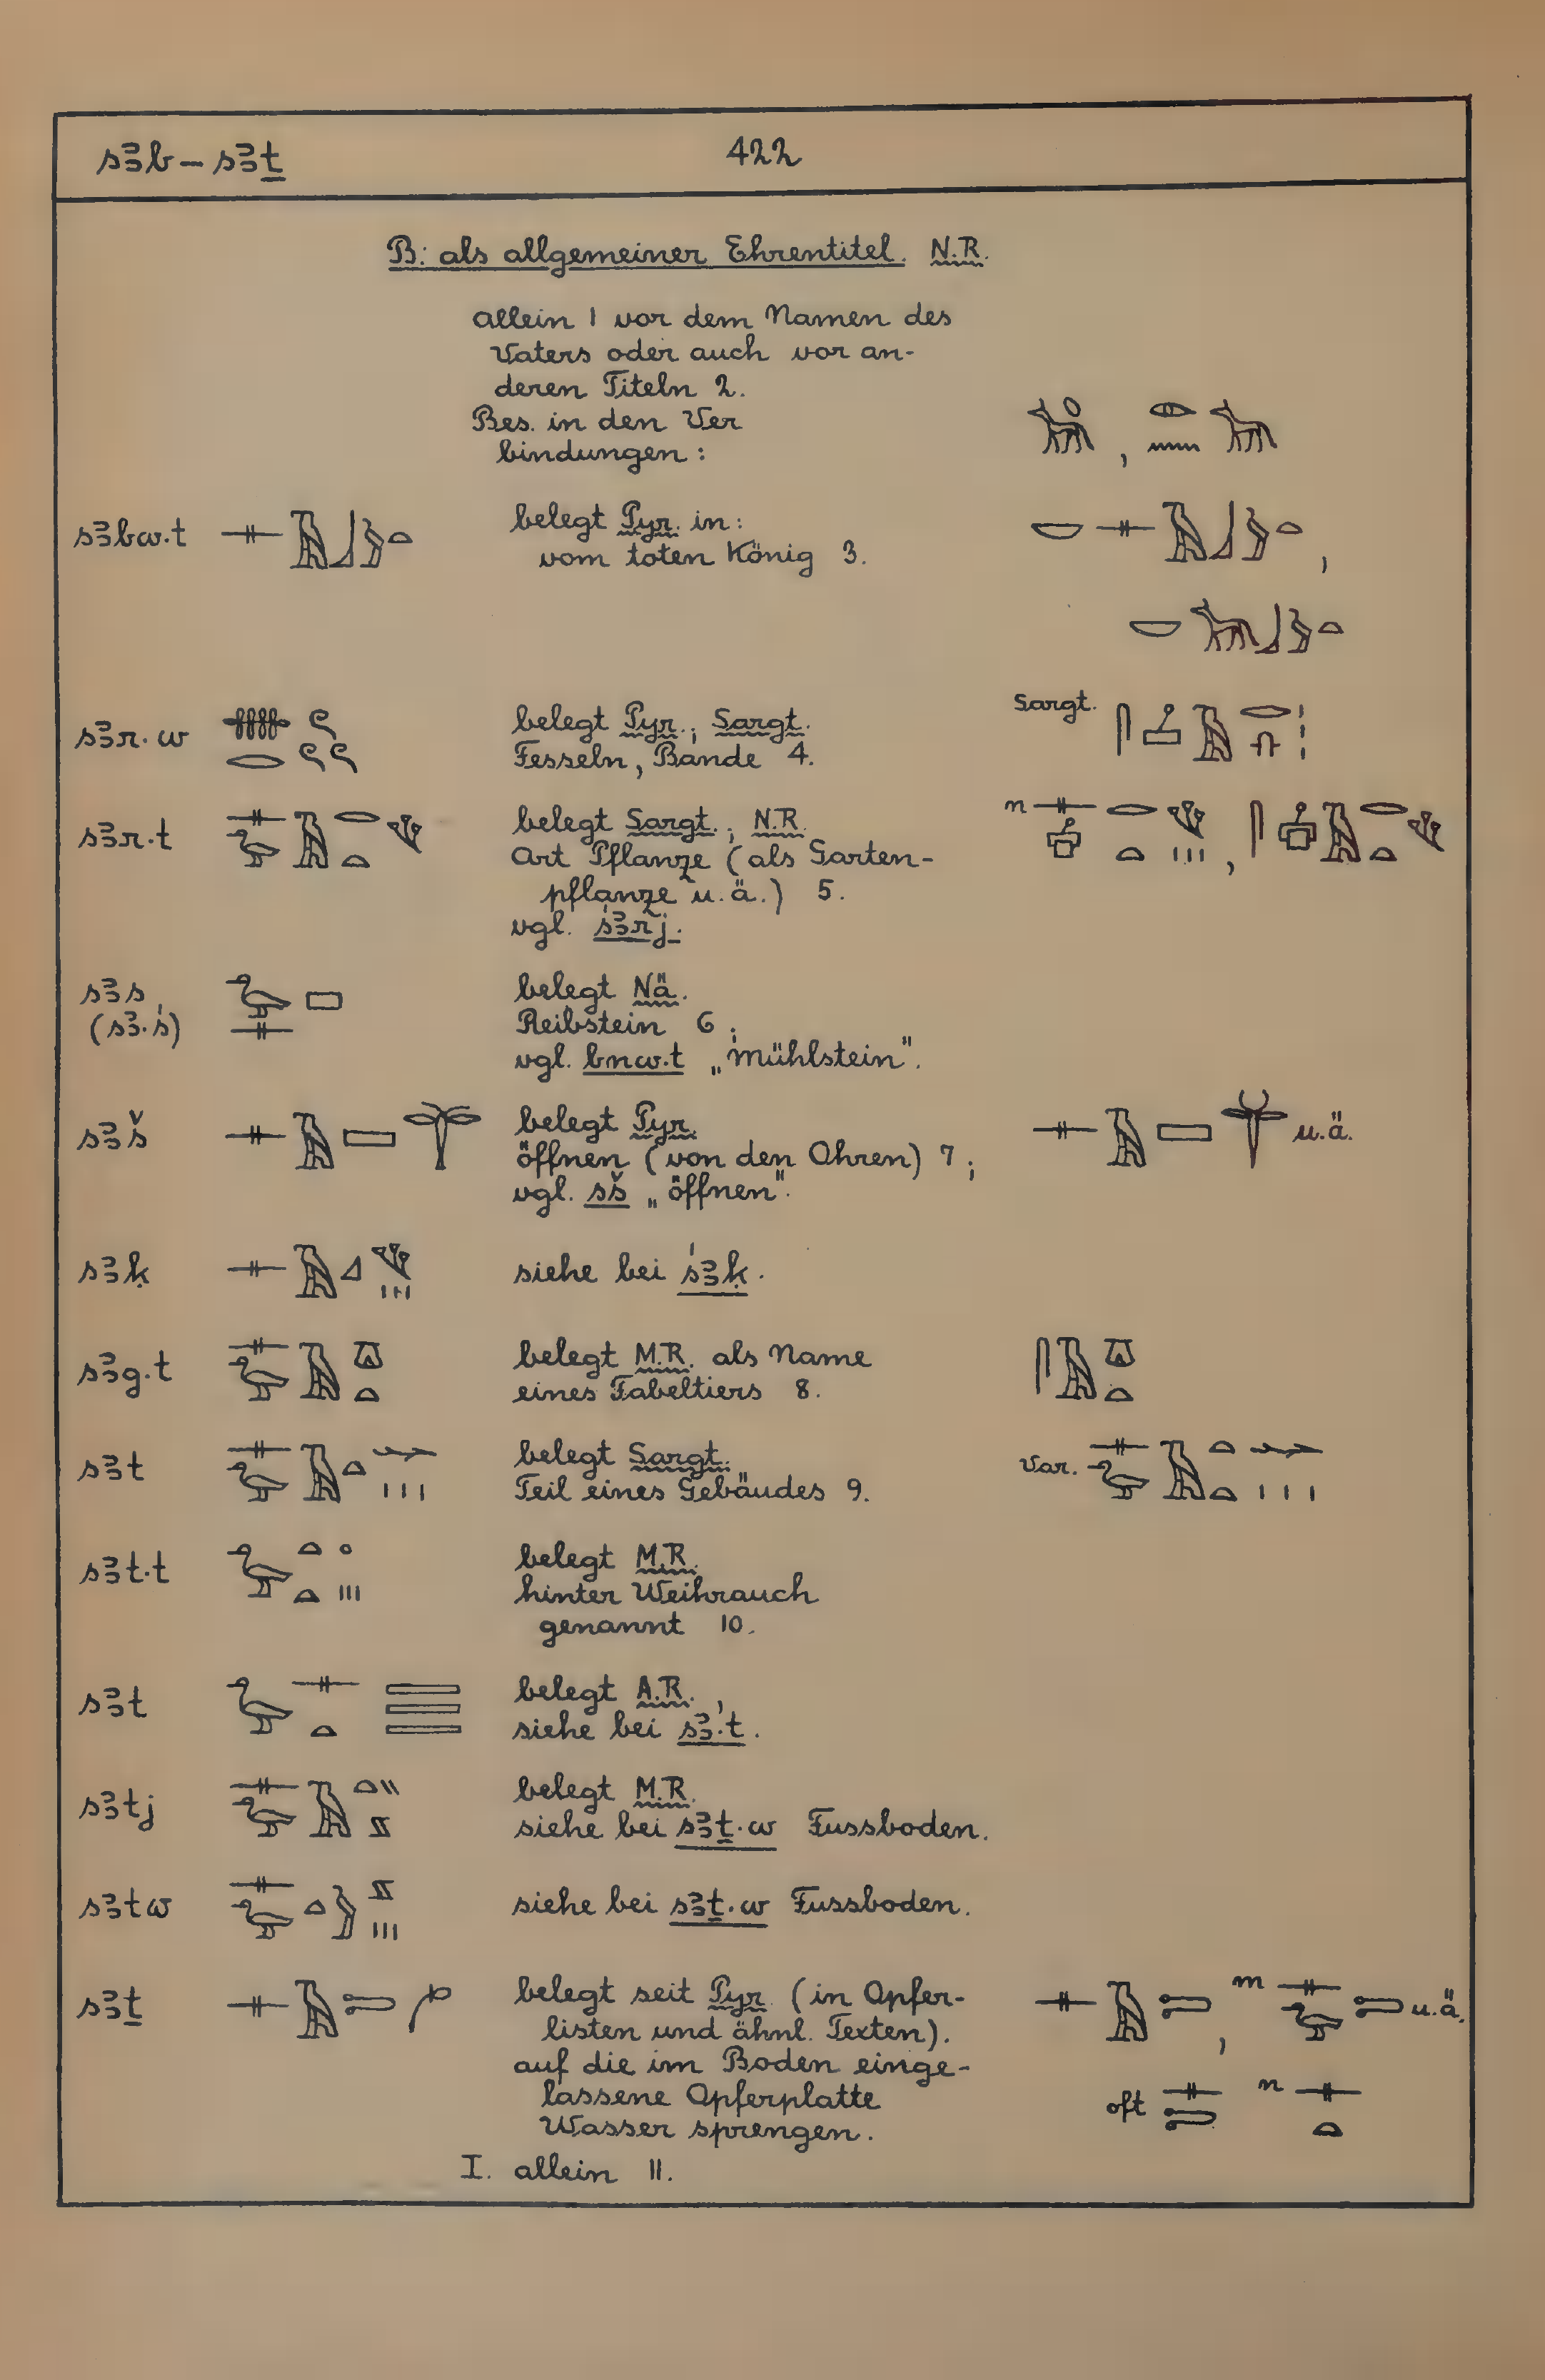 sꜣb – sꜣṯ 422
B: als allgemeiner Ehrentitel. N.R.
allein 1 vor dem Namen des
Vaters oder auch vor an-
deren Titeln 2.
Bes. in den Ver
bindungen:
sꜣbw.t belegt Pyr. in:
vom toten König 3.
sꜣr.w belegt Pyr.; Sargt. Sargt.
Fesseln, Bande 4.
sꜣr.t belegt Sargt.; N.R. n
Art Pflanze (als Garten-
pflanze u.ä.) 5.
vgl. śꜣrj.
sꜣs belegt Nä.
(sꜣ.ś) Reibstein 6;
vgl. bnw.t „Mühlstein".
sꜣš belegt Pyr. u.ä.
öffnen (von den Ohren) 7;
vgl. sš „öffnen".
sꜣḳ siehe bei śꜣḳ.
sꜣg.t belegt M.R. als Name
eines Fabeltiers 8.
sꜣt belegt Sargt. Var.
Teil eines Gebäudes 9.
sꜣt.t belegt M.R.
hinter Weihrauch
genannt 10.
sꜣt belegt A.R.,
siehe bei sꜣ.t.
sꜣtj belegt M.R.
siehe bei sꜣṯ.w Fussboden.
sꜣtw siehe bei sꜣṯ.w Fussboden.
sꜣṯ belegt seit Pyr. (in Opfer- , m u.ä.
listen und ähnl. Texten).
auf die im Boden einge-
lassene Opferplatte oft n
Wasser sprengen.
I. allein 11.